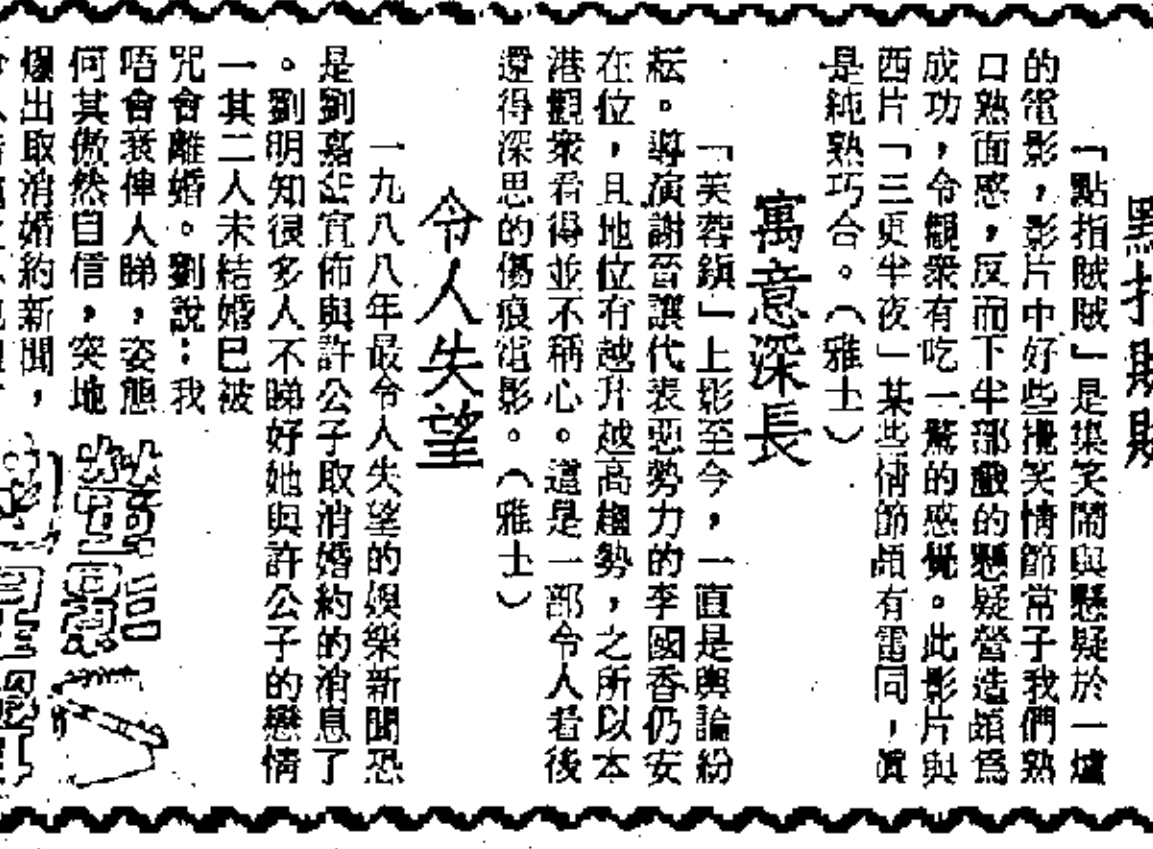 點指賊賊
「點指賊賊」是集笑鬧與懸疑於一爐
的電影，影片中好些攪笑情節常予我們熟
口熟面感，反而下半部戲的懸疑營造頗為
成功，令觀衆有吃一驚的感覺。此影片與
西片「三更半夜」某些情節頗有雷同，眞
是純熟巧合。（雅士）
寓意深長
「芙蓉鎮」上影至今，一直是輿論紛
紜。導演謝晉讓代表惡勢力的李國香仍安
在位，且地位有越升越高趨勢，之所以本
港觀衆看得並不稱心。這是一部令人看後
還得深思的傷痕電影。（雅士）
令人失望
一九八八年最令人失望的娛樂新聞恐
是劉嘉玲宣佈與許公子取消婚約的消息了
。劉明知很多人不睇好她與許公子的戀情
一其二人未結婚已被
咒會離婚。劉說：我
唔會衰俾人睇，姿態
何其傲然自信，突地
爆出取消婚約新聞，